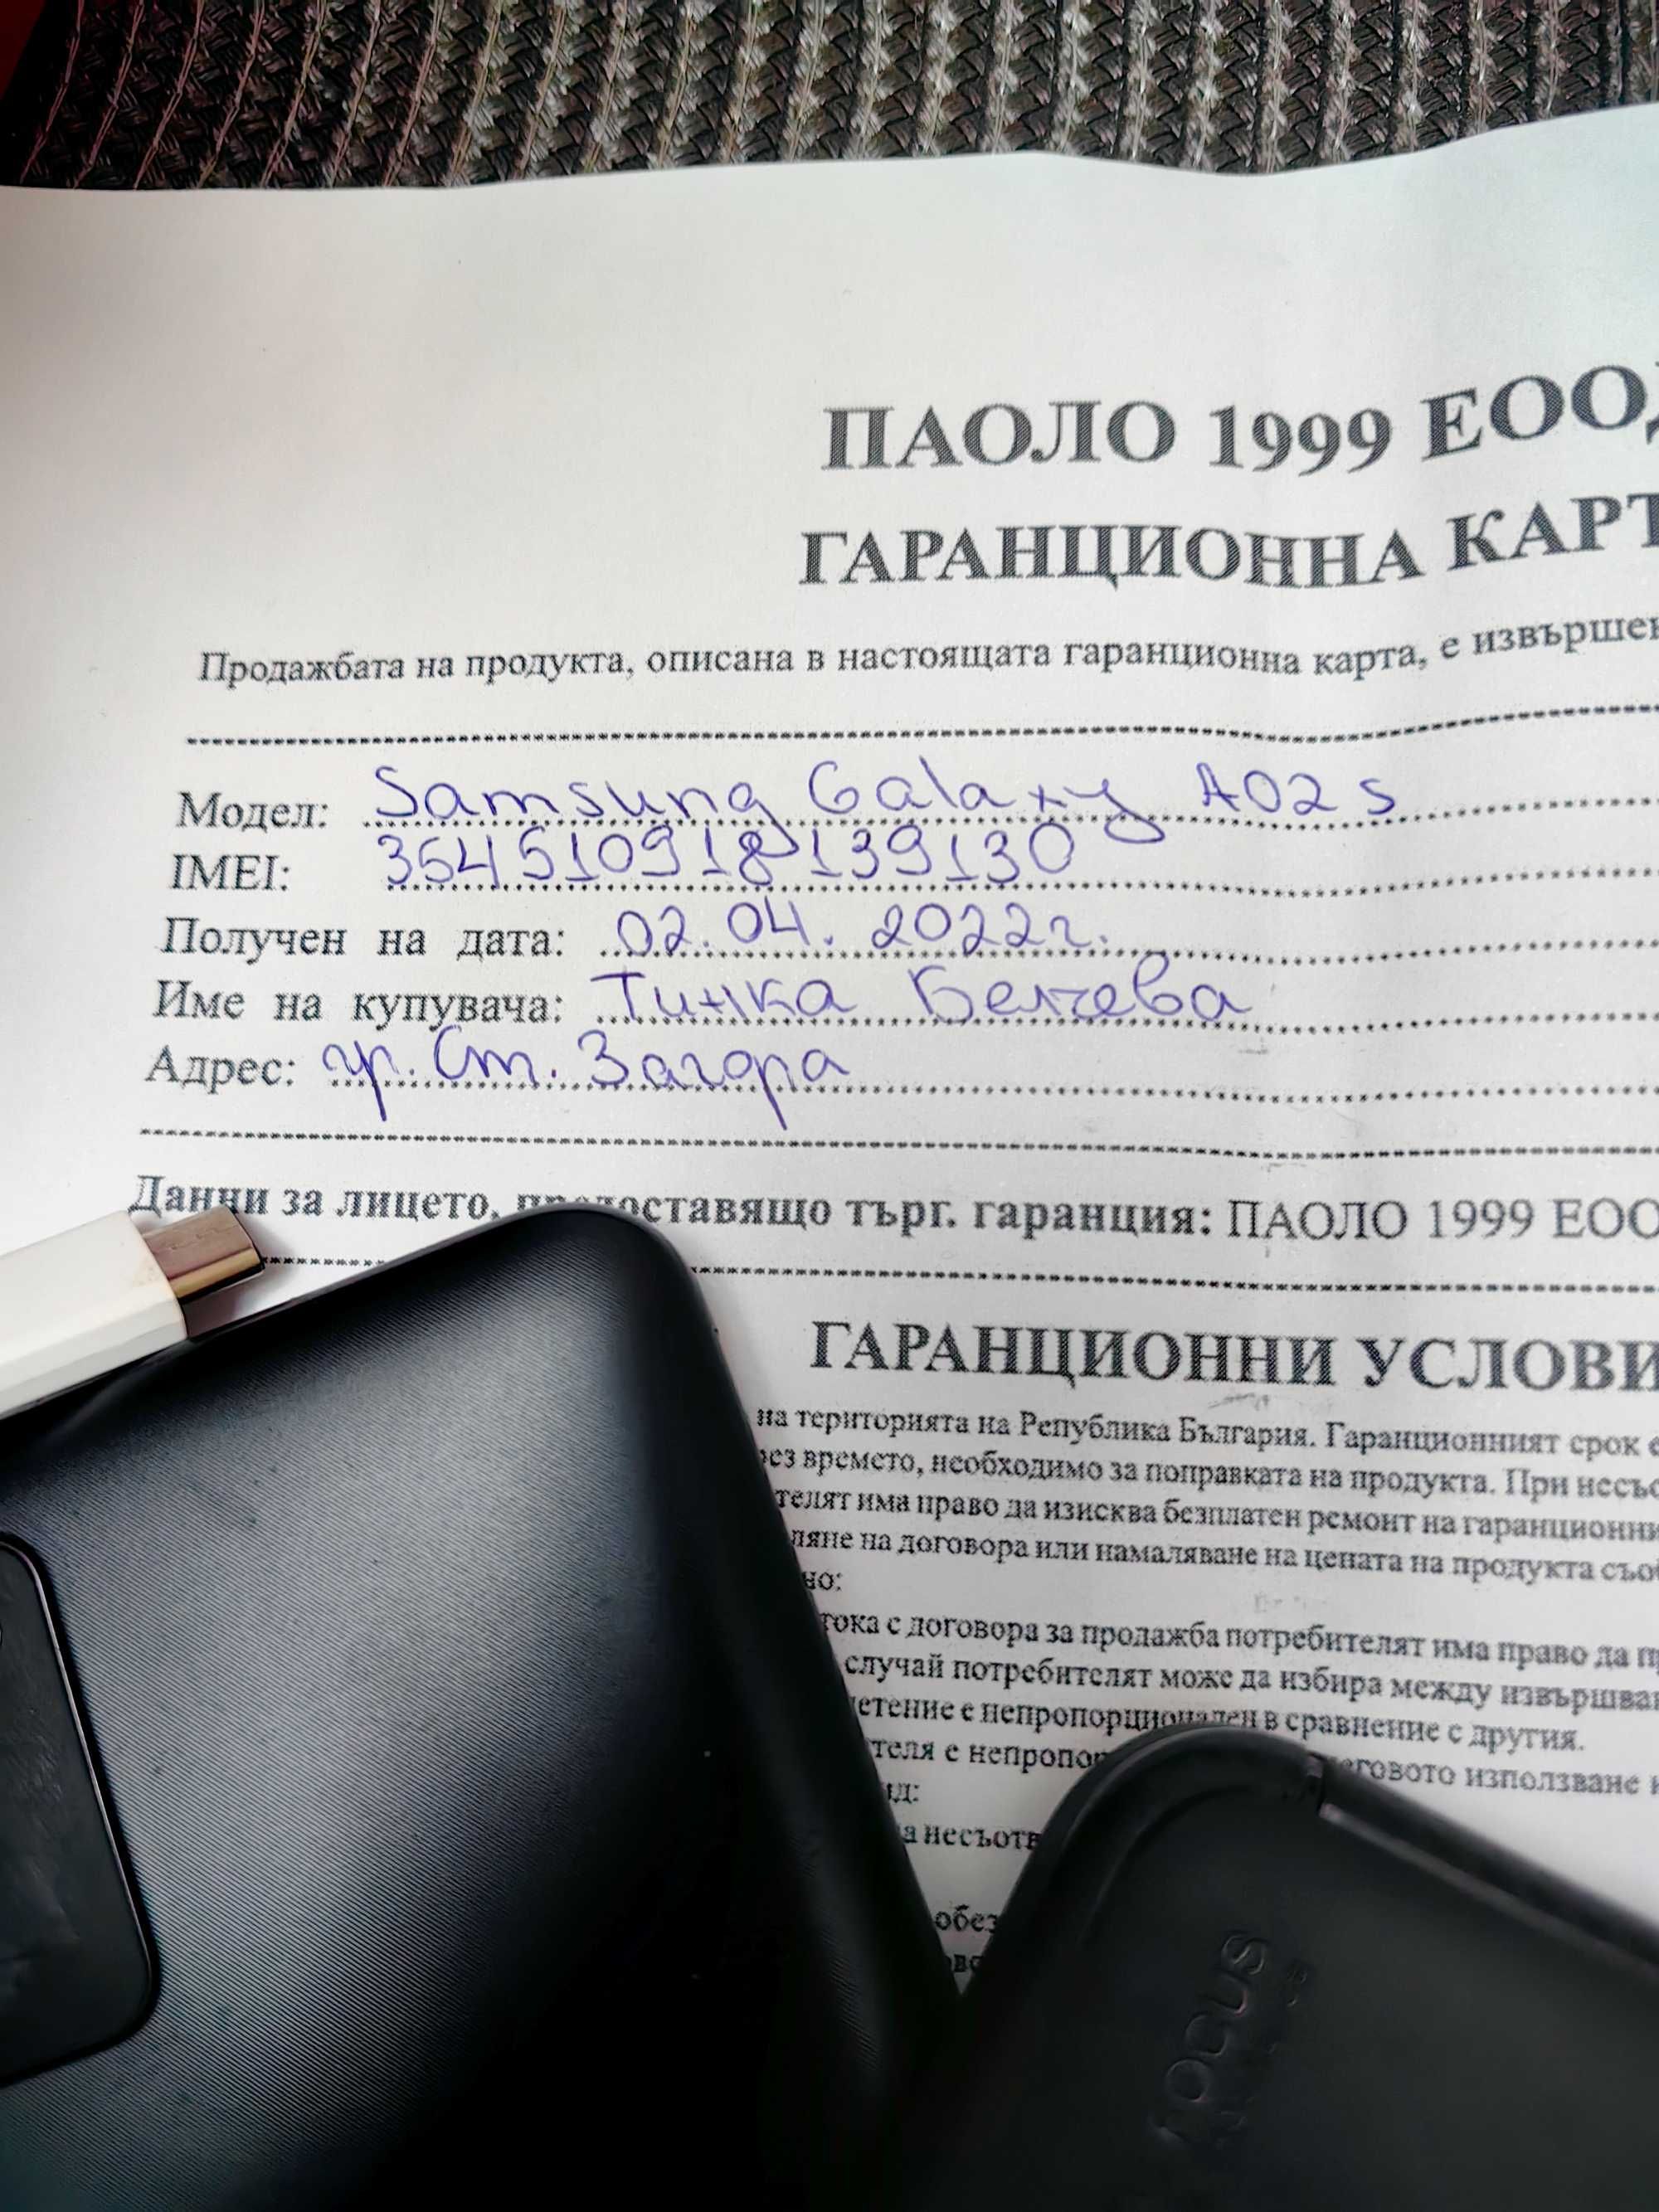 ПАОЛО 1999 ЕОО
ГАРАНЦИОННА КАРТ
Продажбата на продукта, описана в настоящата гаранционна карта, е извършен
Модел: Samsung Galaxy A02s
IMEI: 354510918139130
Получен на дата: 02.04.2022г.
Име на купувача: Тинка Белчева
Адрес: гр. Ст. Загора
Данни за лицето, предоставящо търг. гаранция: ПАОЛО 1999 ЕОО
ГАРАНЦИОННИ УСЛОВИ
на територията на Република България. Гаранционният срок е
рез времето, необходимо за поправката на продукта. При несъо
телят има право да изисква безплатен ремонт на гаранционни
ляне на договора или намаляване на цената на продукта съо
но:
тока с договора за продажба потребителят има право да п
случай потребителят може да избира между извършва
щетение е непропорционален в сравнение с другия.
теля е непропор еговото използване
ид:
а несъотв
обез
FOCUS